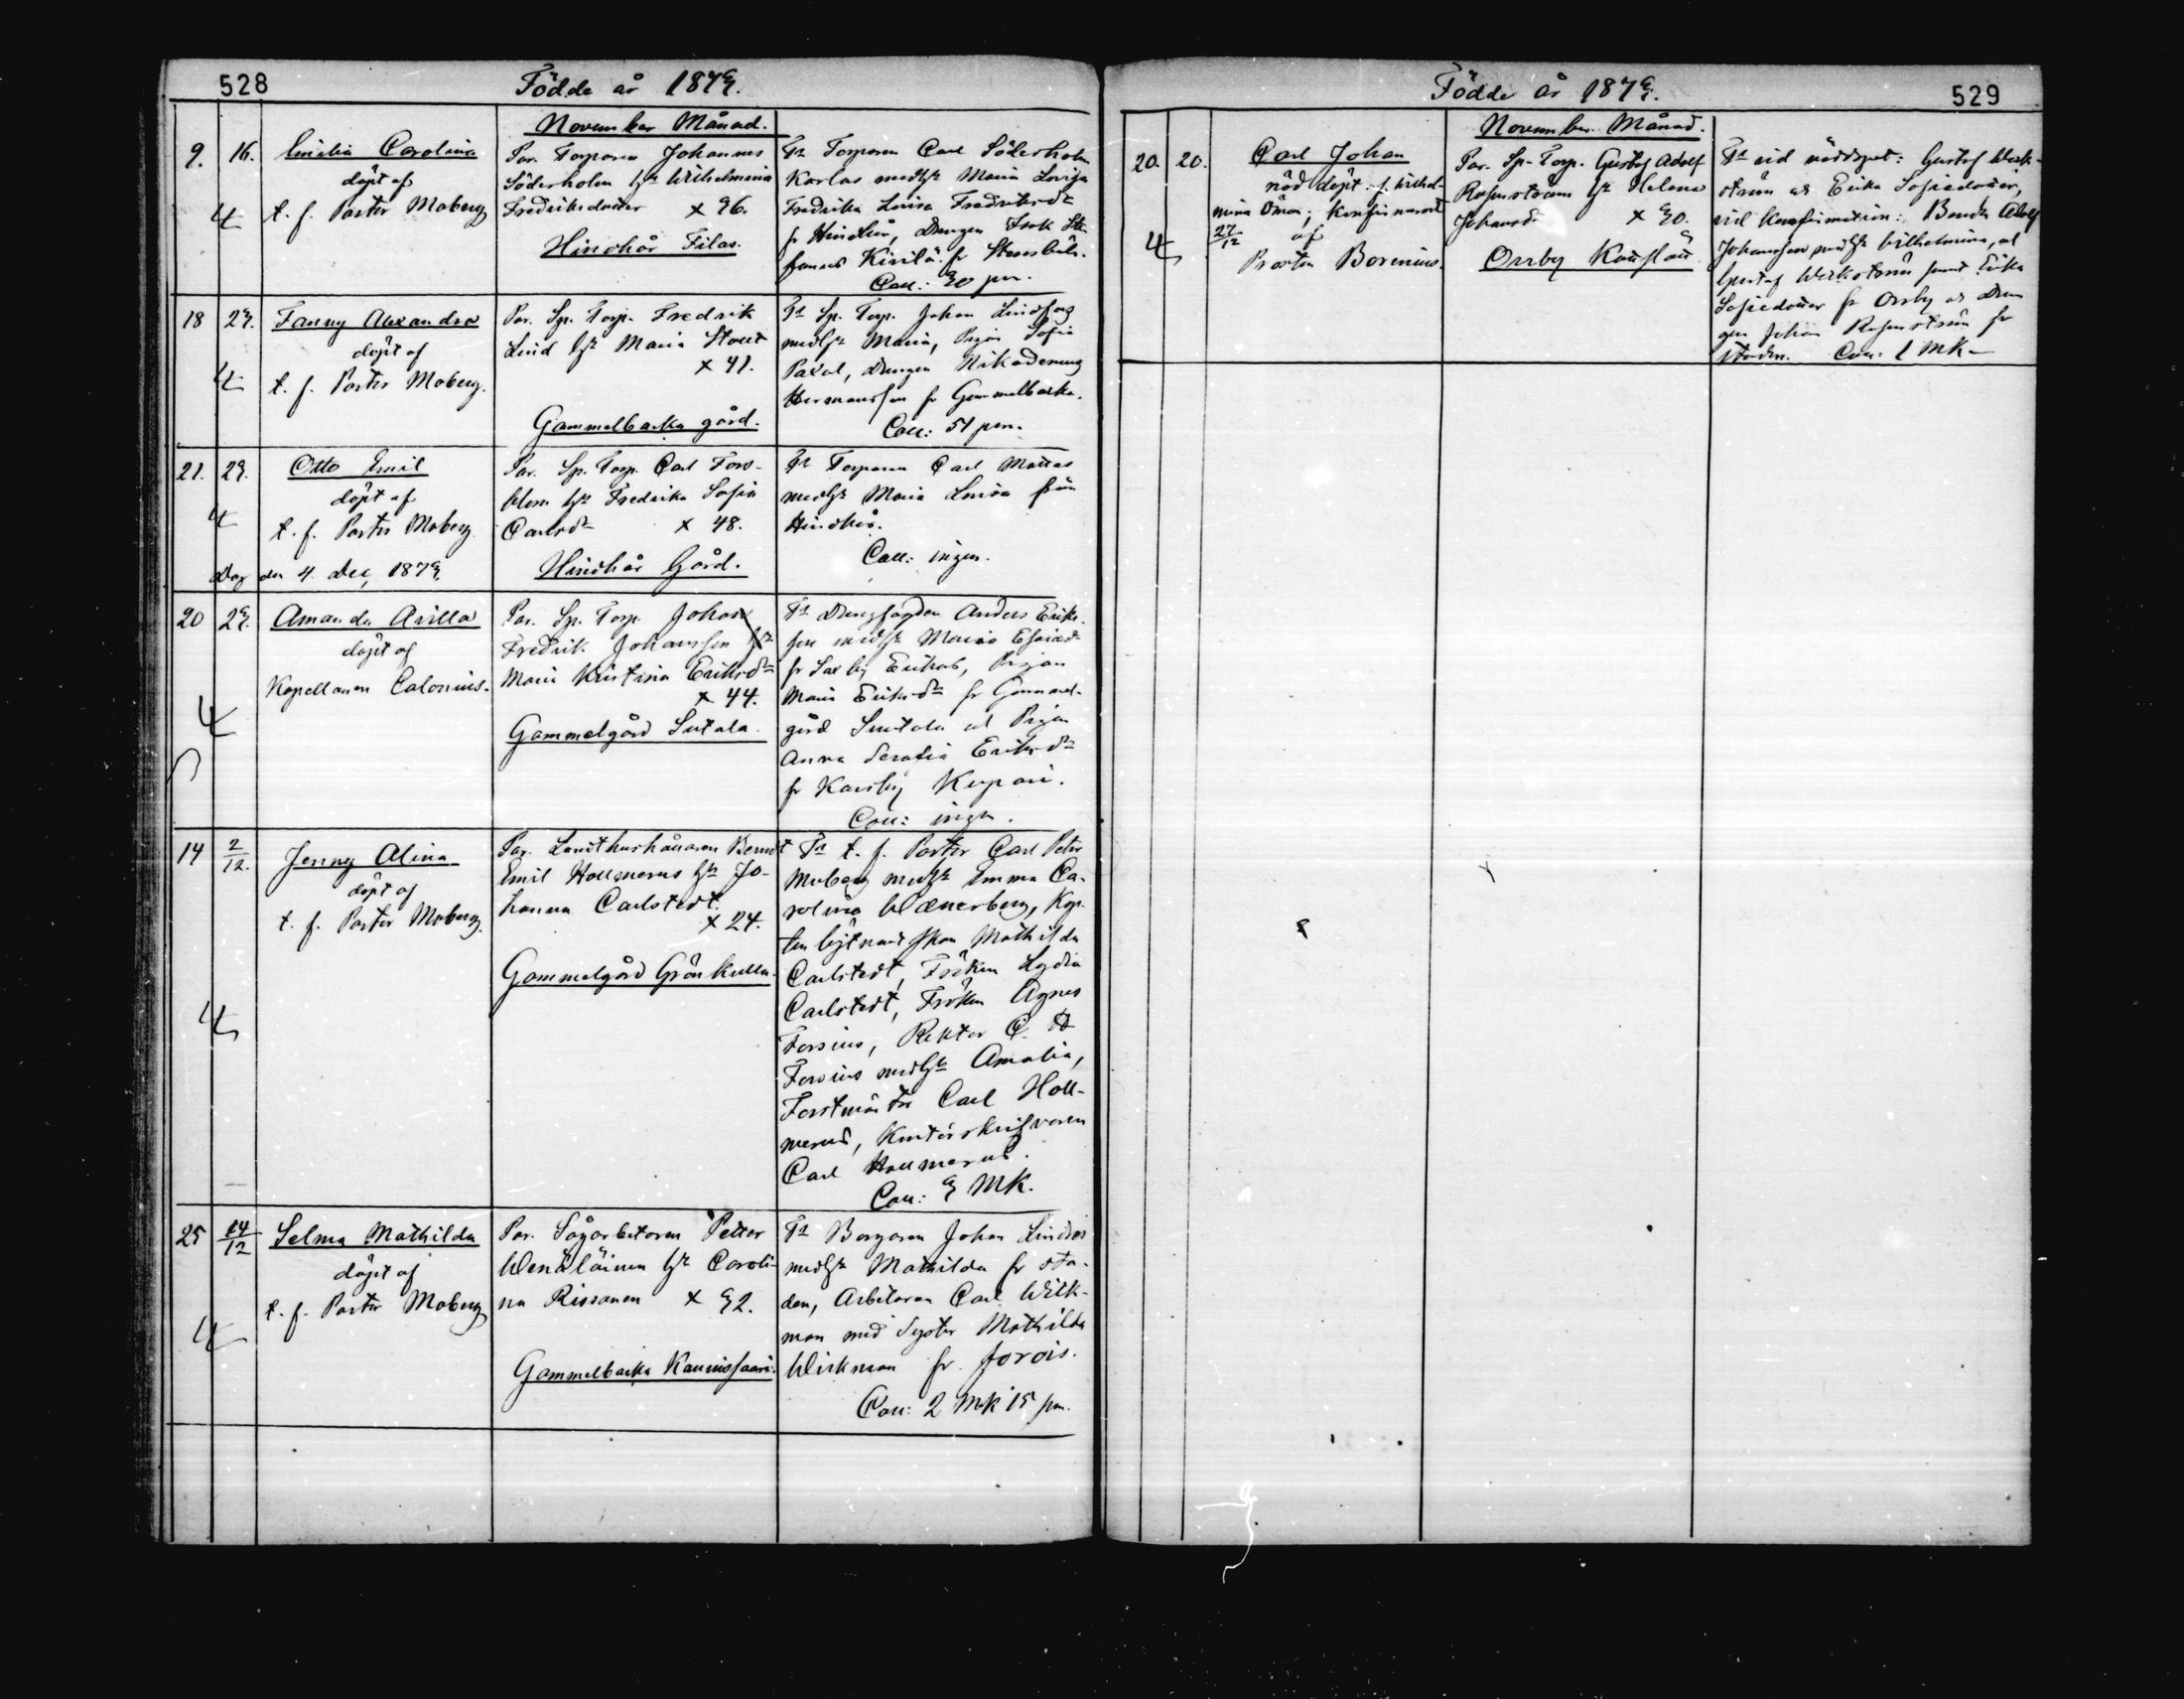 528
Födde år 1879.
November Månad.
9. 16. Emilia Carolina
döpt af
t. f. Pastor Moberg
Par. Torparen Johannes
Söderholm h:r Wilhelmina
Fredriksdotter x 36.
Hindhår Filas.
Fr Torparen Carl Söderholm
Karlas med h:r Maria Lovisa
Fredrika Lovisa Fredriksdr
fr Hindhår, Drengen Isak Ste-
Kivilä fr Stensböle.
Coll: 30 pen.
18 23. Fanny Alexandra
döpt af
t. f. Pastor Moberg.
Par. Sp. Torp. Fredrik
Lind h:r Maria
x 41.
Gammelbacka gård.
Fr Sp. Torp. Johan Lindfors
med h:r Maria, Pigan Sofia
drengen Nikodemus
Hermansson fr Gammelbacka.
Coll: 51 pen.
21. 23. Otto Emil
döpt af
t. f. Pastor Moberg
Dog den 4. Dec, 1879.
Par. Sp. Torp. Carl Fors-
blom h:r Fredrika Sofia
Carlsdr x 48.
Hindhår Gård.
Fr Torparen Carl Mattas
med h:r Maria Lovisa från
Hindhår.
Coll: ingen.
20 23. Amanda Arilla
döpt af
Kapellanen Calonius.
Par. Sp. Torp. Johan
Fredrik Johansson h:r
Maria Kristina Eriksdr
x 44.
Gammelgård Sutala.
Fr Drengfogden Anders Eriks-
son med h:r Maria
fr Saxby Erikas, Pigan
Maria Eriksdr fr Gammel-
gård Suutala och Pigan
Anna Serafia Eriksdr
fr Karsby Kupari.
Coll: ingen.
14 2/12. Jenny Alina
döpt af
t. f. Pastor Moberg.
Par. Landthushållaren Berndt
Emil Hollmerus h:r Jo-
hanna Carlstedt.
x 24.
Gammelgård Grönkulla.
Fr t. f. Pastor Carl Peter
Moberg med h:r Emma Ca-
rolina Wænerberg, Kap-
Mathilda
Carlstedt, Fröken Lydia
Carlstedt, Fröken Agnes
Forsius, Rektor C. H
Forsius med h:r Amalia,
Forstmästar Carl Holl-
merus, Kontorskrifvaren
Carl Hollmerus.
Coll: 3 MK.
25 14/12 Selma Mathilda
döpt af
t. f. Pastor Moberg
Par. Sågarbetaren Petter
Wenäläinen h:r Caroli-
na Rissanen x 32.
Gammelbacka Kaunissaari.
Fr Borgaren Johan Lindros
med h:r Mathilda fr sta-
den, Arbetaren Carl Wirk-
man med Syster Mathilda
Wirkman fr Jorois.
Coll: 2 MK 15 pen.
Födde år 1879.
529
November Månad.
20. 20. Carl Johan
nöd döpt. f. Wilhel-
mina Öman; Konfirmerad
27/12 af
Prosten Borenius.
Par. Sp. Torp. Gustaf Adolf
Rosenström h:r Helena
Johansdr x 30.
Orrby
Fr vid nöddopet: Gustaf Wick-
ström och Erika Sofiedotter,
vid Konfirmation: Bonden Adolf
Johansson med h:r Wilhelmina, och
Gustaf Wickström samt Erika
Sofiedotter fr Orrby och Dren-
gen Johan Rosenström fr
staden. Coll: 1 MK-